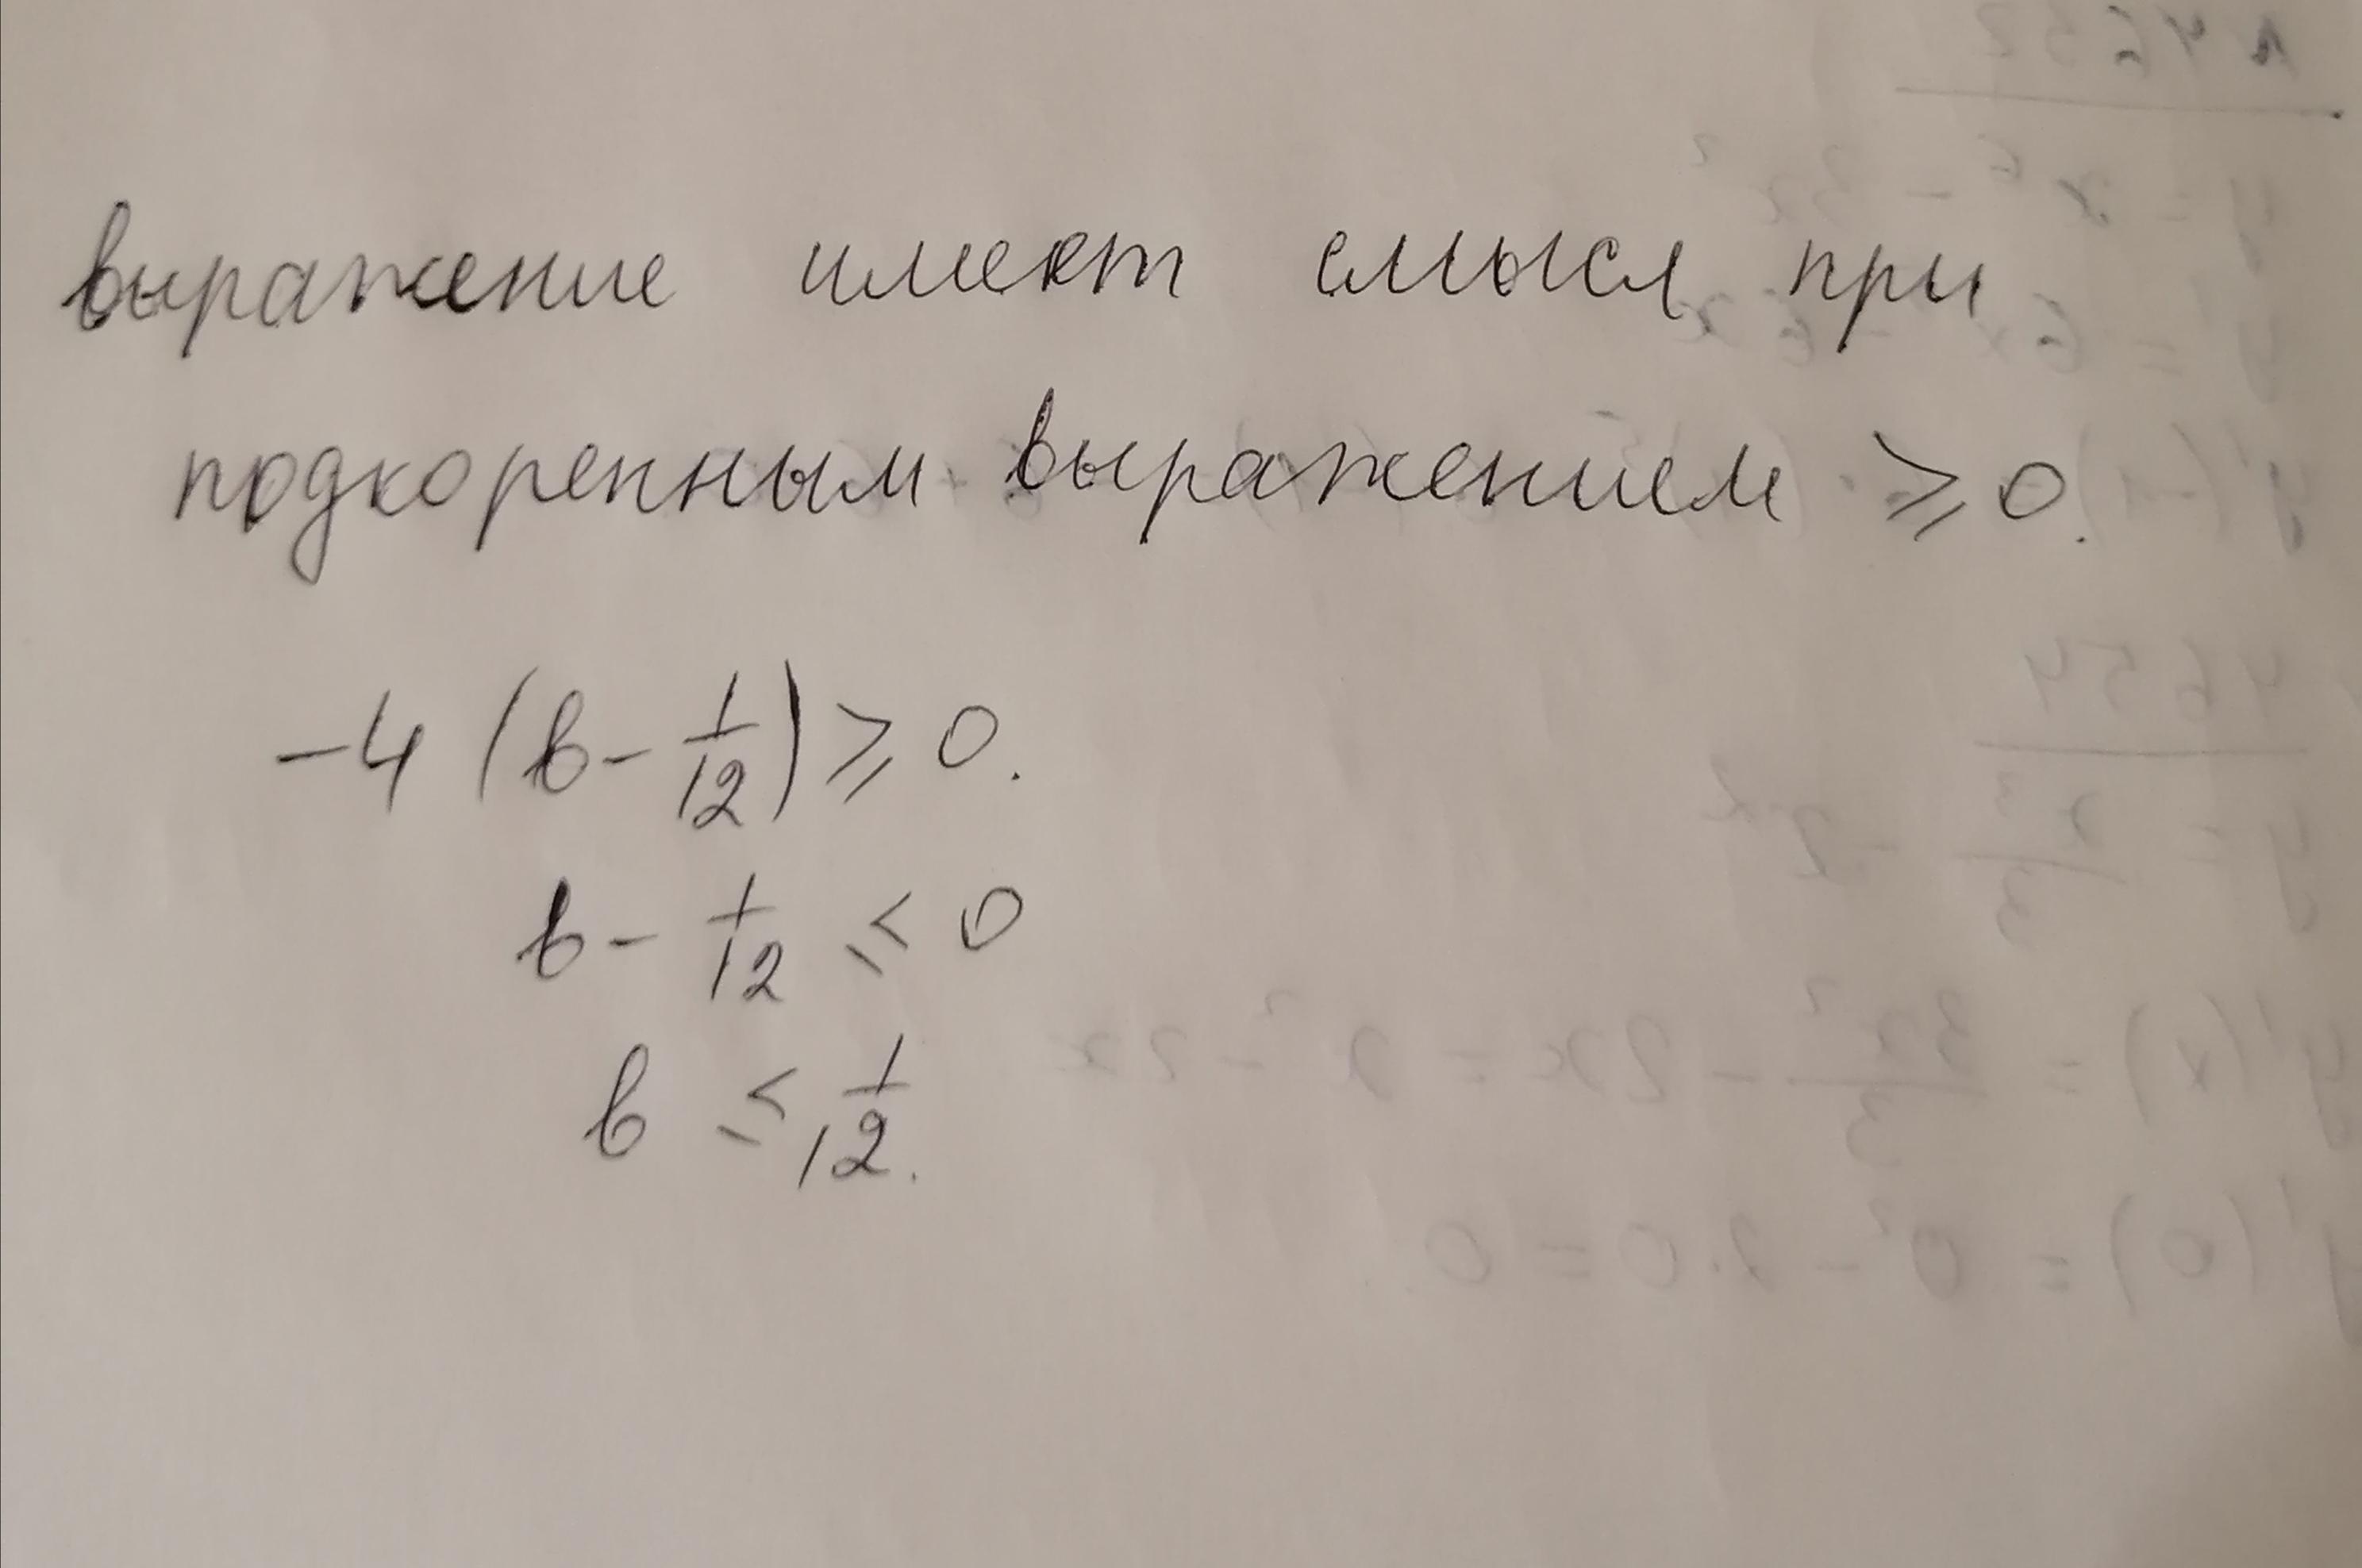 выражение имеет смысл при
подкоренным выражением ⩾ 0.
-4 (в - 1/12) ⩾ 0.
в - 1/12 ⩽ 0
в ⩽ 1/12.